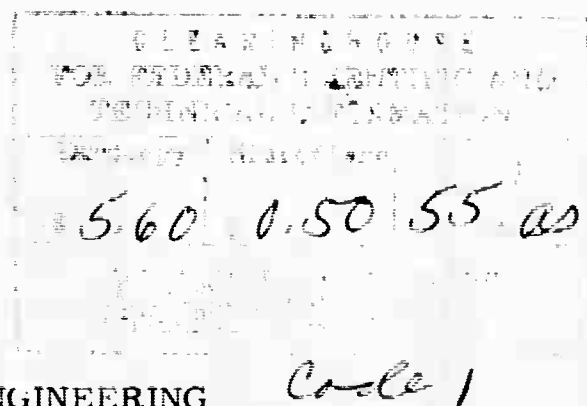 CLEARINGHOUSE
FOR FEDERAL SCIENTIFIC AND
TECHNICAL INFORMATION
Hardcopy Microfiche
$ 5.60 $ 0.50 55 as
Code 1
NGINEERING